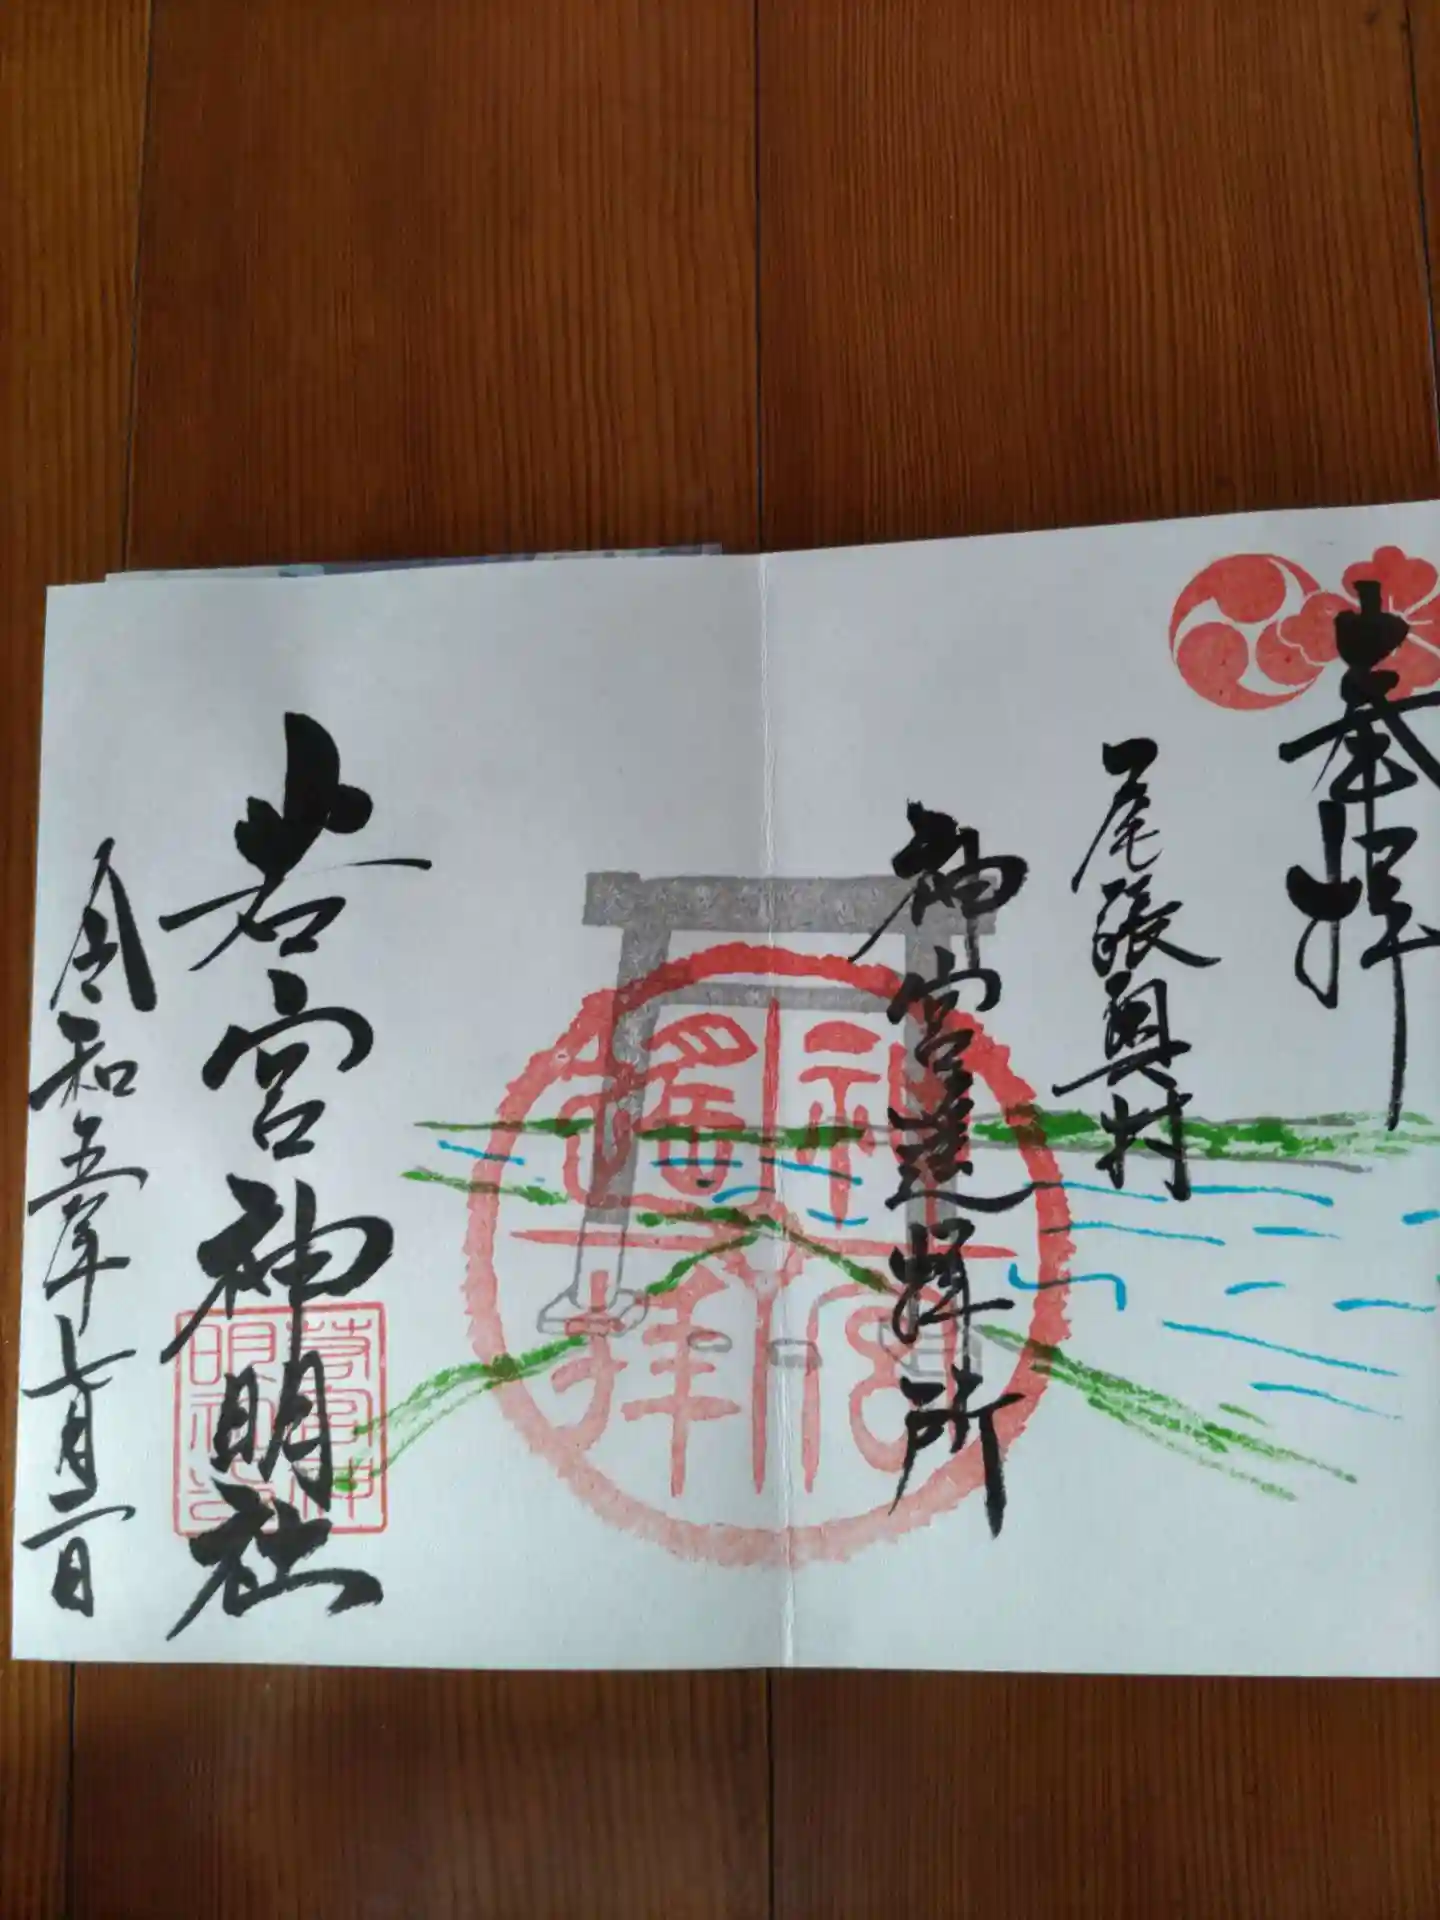 奉拝
尾張奥村
神宮遥拝所
神宮遥拝
若宮神明社
若宮神明社
令和五年七月二日